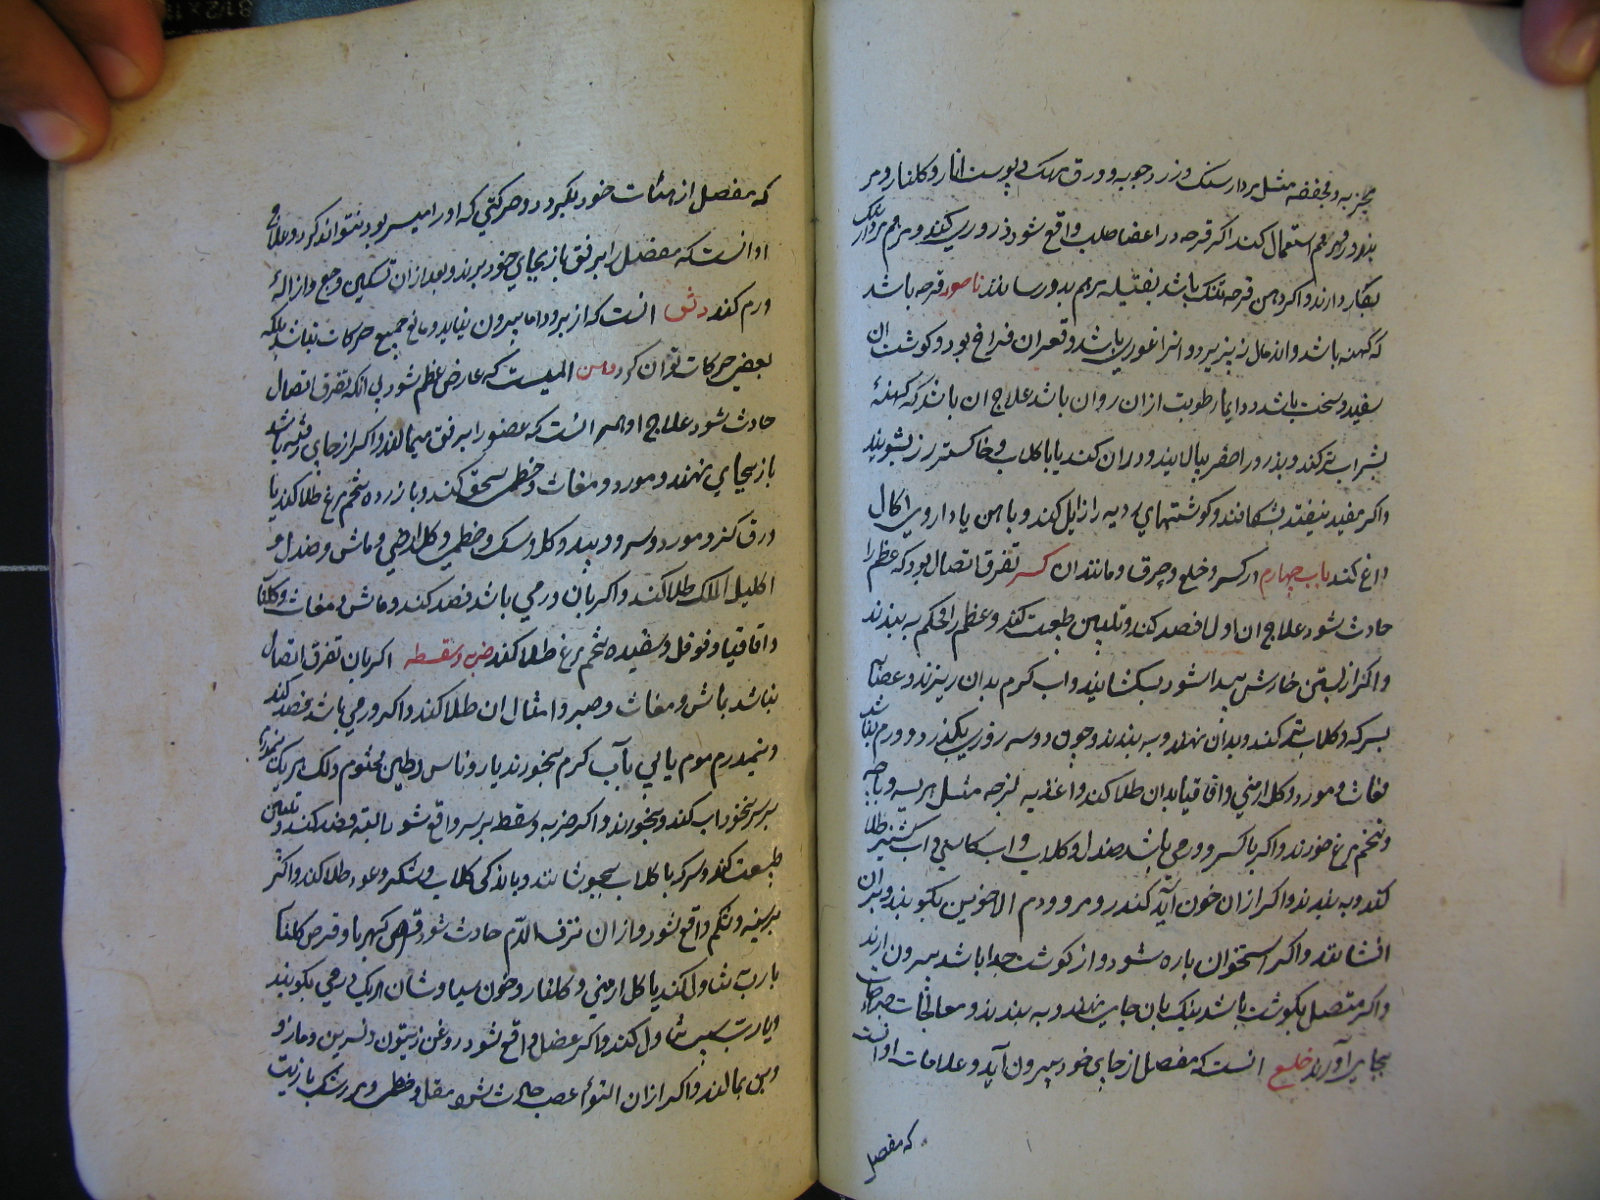 مجربه و مجففه مثل مردارسنک و زردچوبه و ورق مهک و پوست انار و کلنار و مر
بذرور و مرهم استعمال کنند اکر قرحه در اعضا صلب واقع شود ذروری کنند و مرهم مردارسنک
بکار دارند و اکر دهن قرحه تنک باشد بفتیله مرهم بدو رسانند ناصور قرحه باشد
که کهنه باشد و اندمال نپذیرد و انرا غوری باشد و قعر ان فراخ بود و کوشت ان
سفید و سخت باشد و دایما رطوبت از ان روان باشد علاج ان باشد که کهنهٔ
بشراب تر کنند و بذرور اصفر بیالایند و در ان کنند یا با کلاب و خاکستر رز بشویند
و اکر مفید نیفتد بشکافند و کوشتهای ردیه را زایل کنند و باهن یا داروی اکال
داغ کنند باب چهارم در کسر و خلع و حرق و مانند ان کسر تفرق اتصال بود که عظم را
حادث شود علاج ان اول فصد کنند و تلیین طبیعت کنند و عظم را محکم به بندند
و اکر از بستن خارش پیدا شود بکشایند و اب کرم بدان ریزند و عصابه
بسرکه و کلاب تر کنند و بدان نهند و به بندند و چون دو سه روزی بکذرد و ورم نباشد
مغاث و مورد و کل ارمنی و اقاقیا بدان طلا کنند و اغذیه لزجه مثل هریسه و پاچه
و تخم مرغ خورند و اکر با کسر ورمی باشد صندل و کلاب و اب کاسنی و اب کشنیز طلا
کنند و به بندند و اکر از ان خون آید کندر و مر و دم الاخوین بکوبند و بران
افشانند و اکر استخوان پاره شود و از کوشت جدا باشد بیرون ارند
و اکر متصل بکوشت باشد نیک بان جای نهند و به بندند و معالجات جراحات
بجای آورند خلع انست که مفصل از جای خود بیرون آید و علامات او انست
که مفصل
که مفصل از هیئات خود بکردد و حرکتی که او را میسر بود نتواند کرد و علاج
او انست که مفصل را برفق باز بجای خود برند و بعد از ان تسکین وجع و ازالهٔ
ورم کنند وثی انست که از برود اما بیرون نیاید و مانع جمیع حرکات نباشد بلکه
بعضی حرکات توان کرد وهن المیست که عارض عظم شود بی انکه تفرق اتصال
حادث شود علاج او انست که عضو را برفق بمالند و اکر از جای رفته باشد
باز بجای نهند و مورد و مغاث و خطمی سحق کنند و با زرده تخم مرغ طلا کنند یا
ورق کز و مورد و سرو و بید و کل و سک و خطمی و کل ارمنی و ماش و صندل و
اکلیل الملک طلا کنند و اکر بان ورمی باشد فصد کنند و ماش و مغاث و کلنار
و اقاقیا و فوفل و سفیده تخم مرغ طلا کنند ضرب و سقطه اکر بان تفرق اتصال
نباشد ماش و مغاث و صبر و امثال ان طلا کنند و اکر ورمی باشد فصد کنند
و نیمدرم مومیایی بآب کرم بخورند یا روناس و طین مختوم و لک هریک نیمدرم
بسرخوداب کنند و بخورند و اکر ضربه و سقطه بر سر واقع شود البته فصد کنند و تلیین
طبیعت کنند و سرکه با کلاب بجوشانند و باندکی کلاب و شکر و عود طلا کنند و اکر
بر سینه و شکم واقع شود و از ان نزف الدم حادث شود قرص کهربا و قرص کلنار
با رب تناول کنند یا کل ارمنی و کلنار و خون سیاوشان هریک درمی بکوبند
و با رب سیب تناول کنند و اکر عضل واقع شود روغن زیتون و نسرین و مارزو
وبن بمالند و اکر از ان التواء عصب حادث شود مقل و خطمی و زرشک با زیت